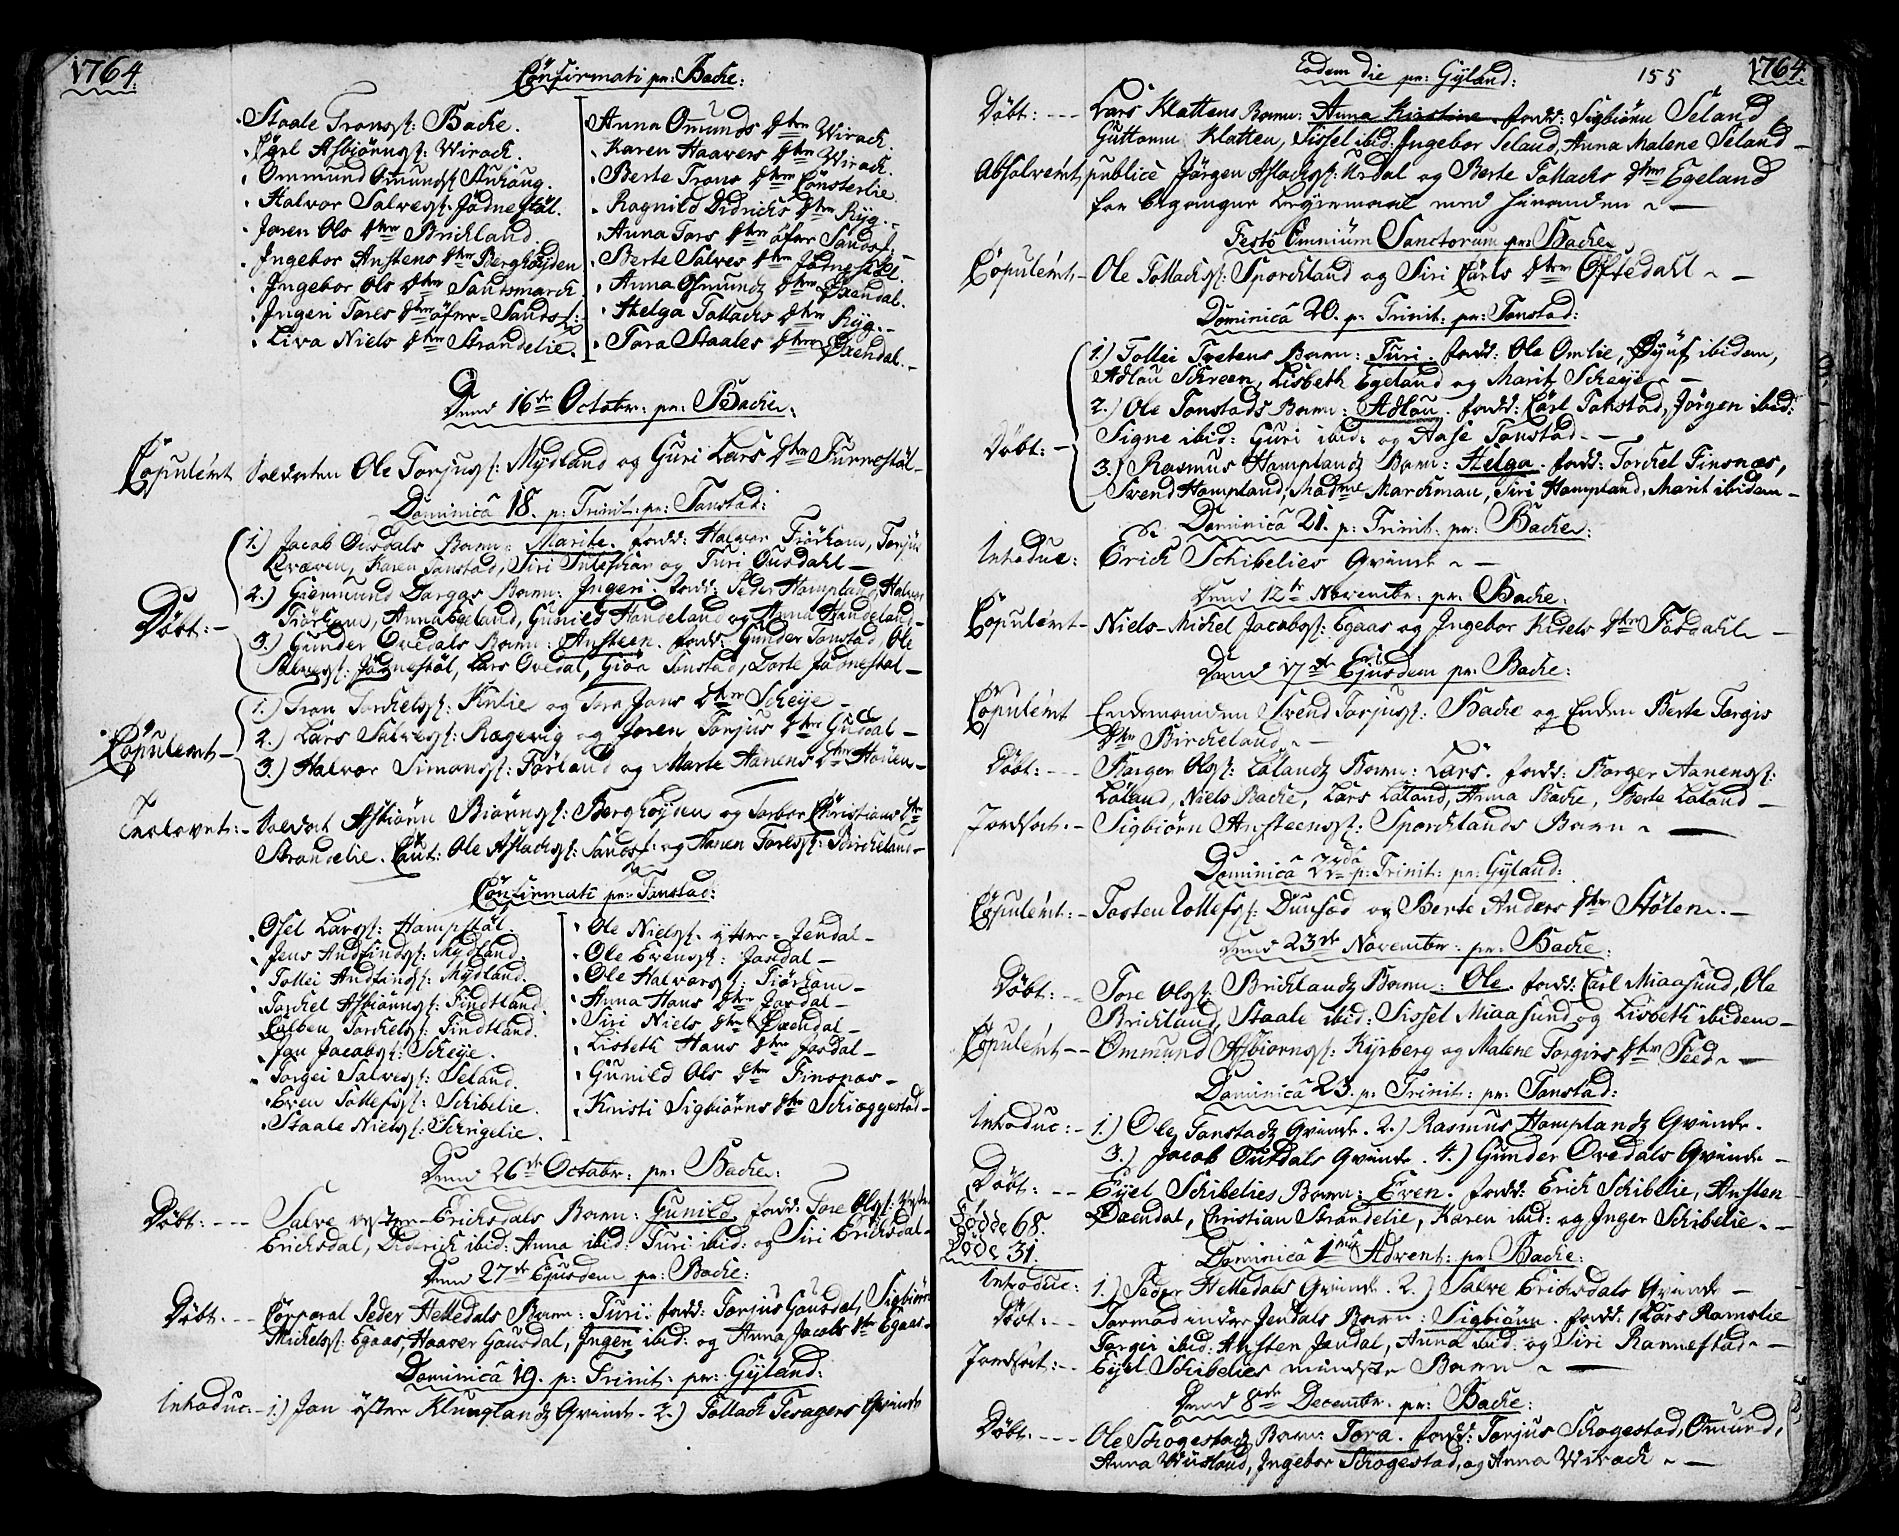 1764.
Confirmati pr: Backe:
Staale Tronss: Backe.
Carl Asbiörnss: Wirack.
Ommund Omunds: Stuhaug.
Halvor Salvess: Jödnestöl.
Joren Ols Dtter Brickland
Ingebor Anstens Dtter Berghöyden
Ingebor Ols Dtter Sandsmarck.
Ingeri Tores Dtter öfre-Sands:
Liva Niels Dtter Strandelie.
Anna Omunds Dtter Wirack.
Karen Haavers Dtter Wirack.
Berte Trons Dtter Lönsterlie.
Ragnild Didricks Dtter Ryg.
Anna Tors Dtter öfre Sands:
Berte Salves Dtter Jödnestöl.
Anna Osmunds Dtter Dxendal.
Helga Tollachs Dtter Ryg.
Tora Staales Dtter Dxendal.
Dend 16de Octobr: pr: Backe:
Copuleret Soldaten Ole Torjuss: Mydland og Guri Lars Dtter Furrestöl
Dominica 18. p: Trinit: pr: Tonstad:
Döbt:
1.) Jacob Ousdals Barn: Marite. fadd: Halvor Frörham, Torjus
Qvæven, Karen Tonstad, Siri og Turi Ousdahl
2.) Giermund Dorgas Barn: Ingeri. fadd: Peder Hompland, Halvor
Frörham, Anna Egeland, Gunild Handeland og Anna Handeland
3.) Gunder Ovedals Barn: Ansteen. fadd: Gunder Tonstad, Ole
Salvess: Jödnestöl, Lars Ovedal, Gioa Tonstad, Dorte Jödnestöl
Copuleret
1.) Tron Torckelss: Finlie og Tora Jons Dtter Scheye
2.) Lars Salvess: Rægevig og Joren Torjus Dtter Guddal
3.) Halvor Simonss: Förland og Marte Hanens Dtter Houen
Trolovet: Soldat Asbiörn Biörnss: Berghöyden og Torbor Christians Dtter
Strandelie. Caut: Ole Aslachss: Sands: og Hanen Toress: Birckeland
Confirmati pr: Tonstad:
Osel Larss: Hompstöl.
Jens Andfindss: Mydland.
Tollei Andfindss: Mydland.
Torckel Asbiörnss: Findtland.
Tolben Torckelss: Findtland.
Jon Jacobss: Scheye.
Torgei Salvess: Seland.
Even Tollefss: Schibelie.
Staale Nielss: Schrigelie.
Ole Nielss: ytter-Jendal
Ole Evenss: Josdal
Ole Halvorss: Frörham
Anna Hans Dtter Josdal
Siri Niels Dtter Dxendal
Lisbeth Hans Dtter Josdal
Gunild Ols Dtter Finsnæs
Kristi Sigbiörns Dtter Schioggestad
Dend 26de Octobr: pr: Backe:
Döbt: Salve vestre-Ericksdals Barn: Gunild. fadd: Tore Olss: Vestre
Ericksdal, Diderich ibid: Anna ibid: Turi ibid: og Siri Ericksdal
Dend 27de Ejusdem pr: Backe:
Döbt: Corporal Peder Helledals Barn: Turi. fadd: Torjus Gousdal, Sigbiörn
Michelss: Egaas, Haaver Gousdal, Ingeri ibid: og Anna Jacobs Dtter Egaas
Dominica 19. p: Trinit: pr: Gyland:
Introduc: 1.) Jon östre Klunglands Qvinde. 2.) Tollach Tesagers Qvinde
Eodem die pr: Gyland: 155 1764.
Döbt: Lars Klattens Barn: Anna Kirstine. fadd: Sigbiörn Seland
Guttorm Klatten, Sissel ibid: Ingebor Seland, Anna Malene Seland
Absolveret publice Jörgen Aslachss: Urdal og Berte Tollachs Dtter Egeland
for begangne Leyermaal med hinanden
Festo Omnium Sanctorum pr: Backe:
Copuleret Ole Tollachss: Sporckland og Siri Carls Dtter Oftedahl
Dominica 20. p: Trinit: pr: Tonstad:
Döbt:
1.) Tollei Tvetens Barn: Turi. fadd: Ole Omlie, Öyuf ibidem,
Adlau Schreen, Lisbeth Egeland og Marit Scheye
2.) Ole Tonstads Barn: Adlau. fadd: Carl Tonstad, Jörgen ibid:
Signe ibid: Guri ibid: og Aase Tonstad
3.) Rasmus Homplands Barn: Helga. fadd: Torckel Finsnæs,
Svend Hompland, Madme Marckman, Siri Hompland, Marit ibidem
Dominica 21. p: Trinit: pr: Backe:
Introduc: Erick Schibelies Qvinde
Dend 12te Novembr: pr: Backe:
Copuleret Niels-Michel Jacobss: Egaas og Ingebor Kidels Dtter Fosdahl
Dend 17de Ejusdem pr: Backe:
Copuleret Enckemanden Svend Torjuss: Backe og Encken Berte Torgis
Dtter Birckeland.
Döbt: Börger Olss: Lölands Barn: Lars. fadd: Borger Aanenss:
Löland, Niels Backe, Lars Löland, Anna Backe, Berte Löland
Jordfæst: Sigbiörn Ansteenss: Sporcklands Barn
Dominica 22da p: Trinit: pr: Gyland:
Copuleret: Tosten Tollefss: Dunsæd og Berte Anders Dtter Stölen.
Dend 23de Novembr: pr: Backe:
Döbt: Tore Olss: Bricklands Barn: Ole. fadd: Carl Miaasund, Ole
Brickland, Staale ibid: Sissel Miaasund og Lisbeth ibidem
Copuleret Ommund Asbiörnss: Kyrberg og Malene Torgirs Dtter Feed
Dominica 23. p: Trinit: pr: Tonstad:
Introduc: 1.) Ole Tonstads Qvinde. 2.) Rasmus Homplands Qvinde.
3.) Jacob Ousdals Qvinde. 4.) Gunder Ovedals Qvinde
Döbt: Eyel Schibelies Barn: Even. fadd: Erick Schibelie, Ansten
Dxendal, Christian Strandelie, Karen ibid: og Inger Schibelie.
Födde 68.
Döde 31.
Dominica 1ma Advent: pr: Backe:
Introduc: 1.) Peder Helledals Qvinde. 2.) Salve Ericksdals Qvinde
Döbt: Tormod indre Jendals Barn: Sigbiörn. fadd: Lars Ramslie
Torgei ibid: Ansten Jendal, Anna ibid: og Siri Rannestad
Jordfæst: Eyel Schibelies mindste Barn
Dend 8de Decembr: pr: Backe:
Döbt: Ole Schogestads Barn: Tora. fadd: Torjus Schogestad, Omund,
Anna Wusland, Ingebor Schogestad, og Anna Wirack